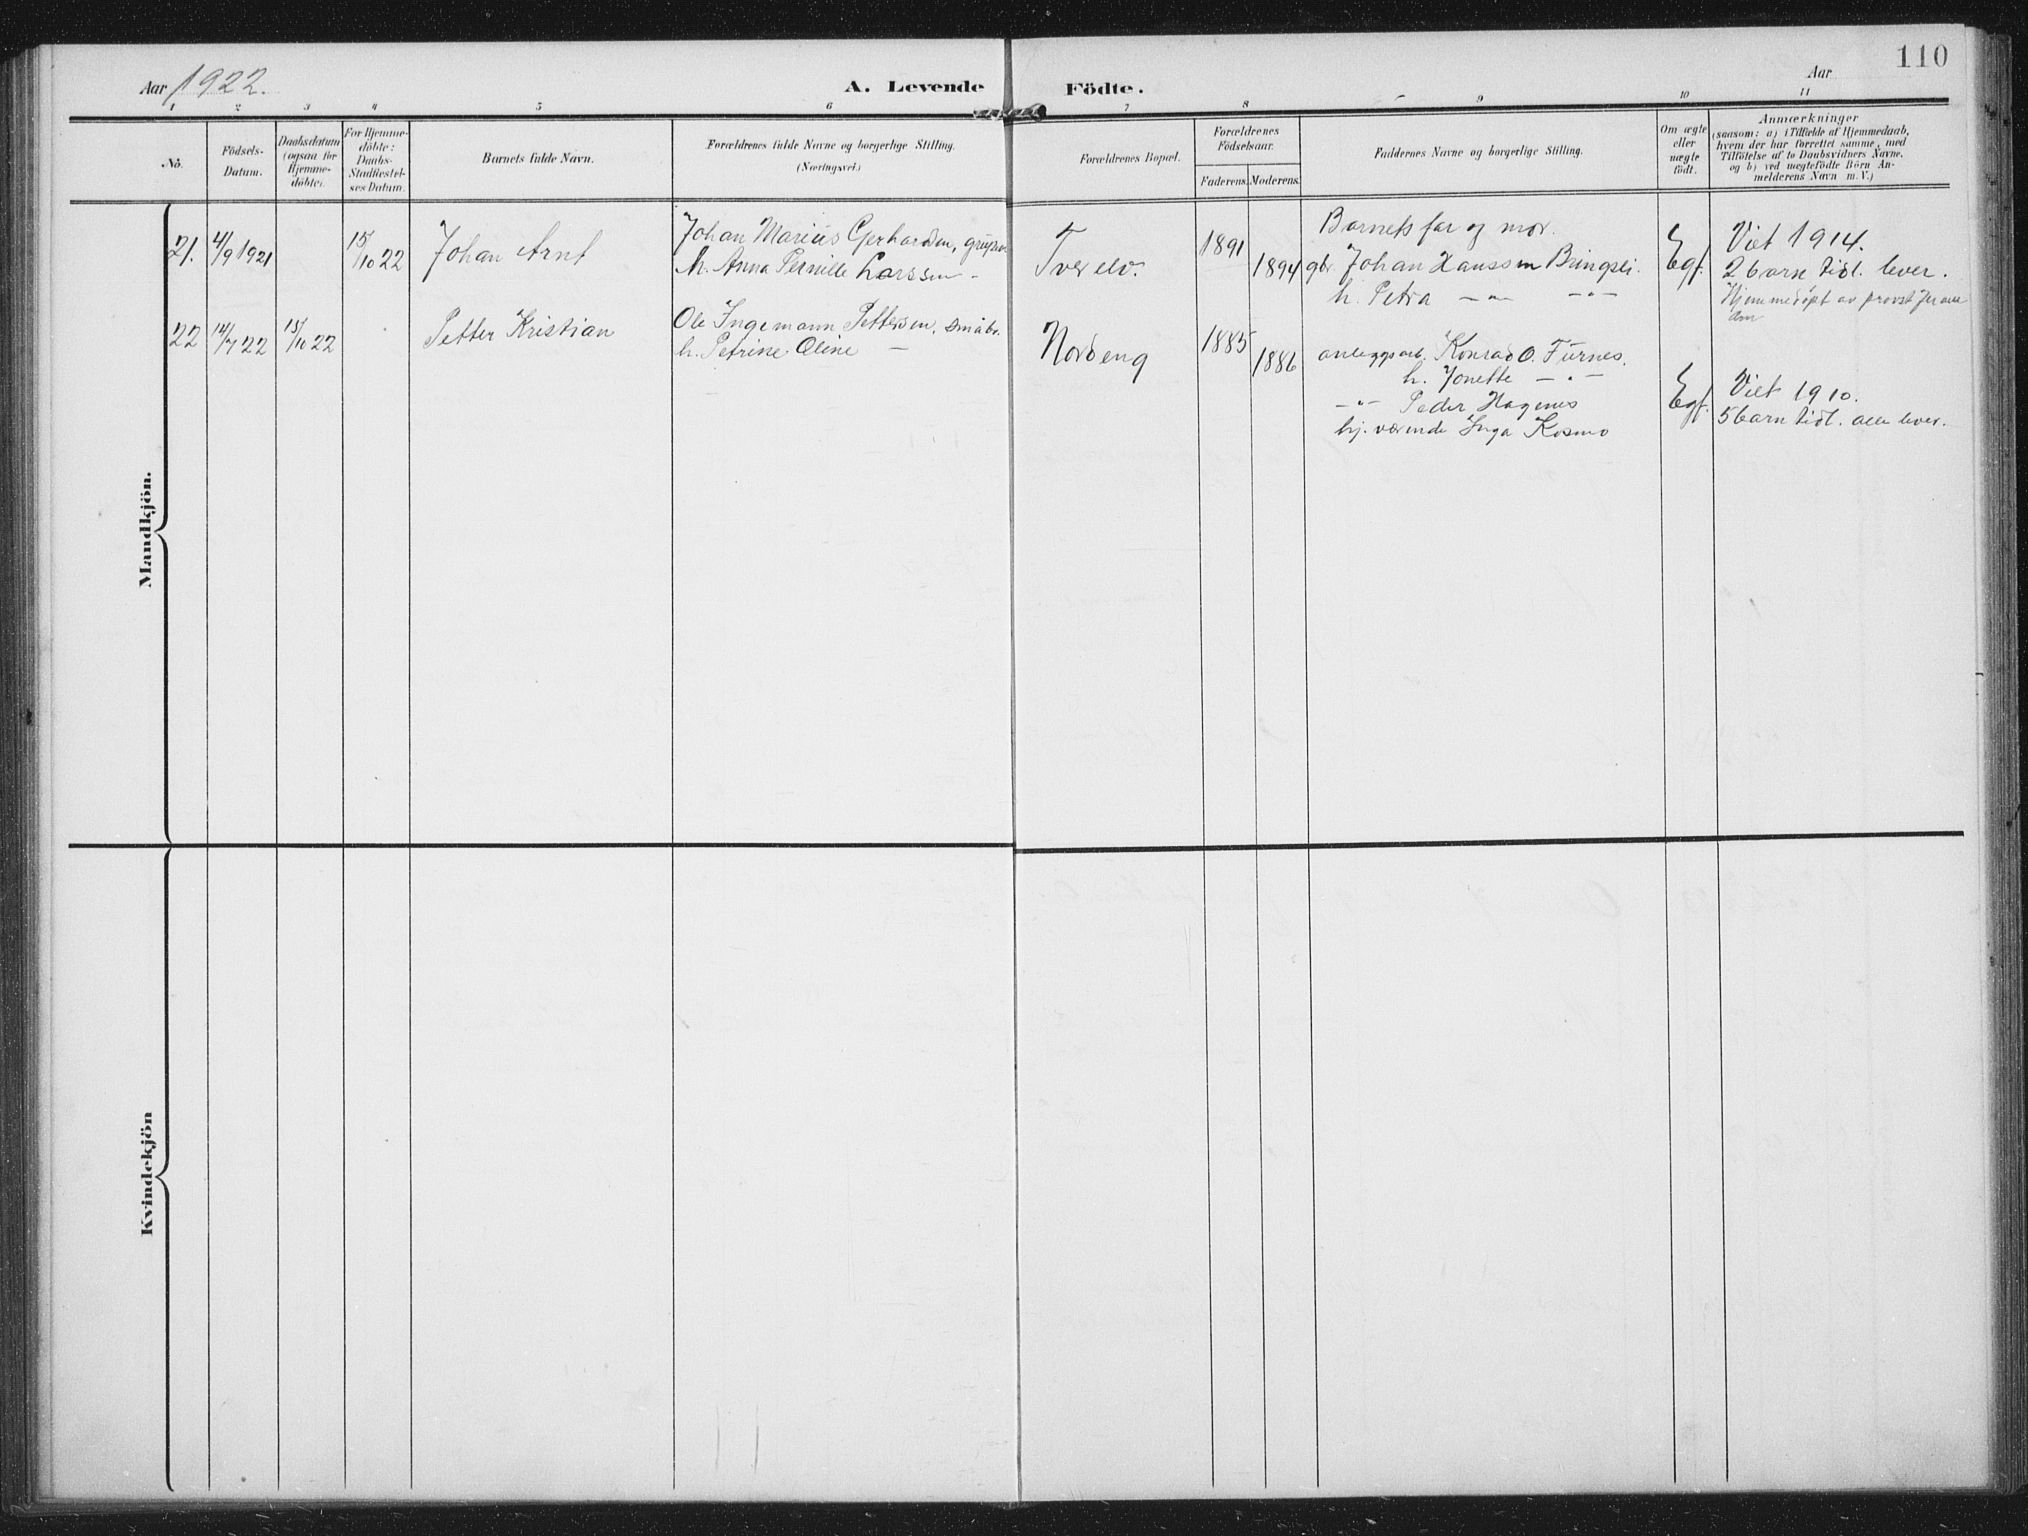 110
Aar 1922.
A. Levende Födte.
Aar
1 2 3 4 5 6 7 8 9 10 11
No.
Födsels-
Datum.
Daabsdatum
(ogsaa for
Hjemme-
döbte).
For Hjemme-
döbte:
Daabs-
Stadfæstel-
ses Datum.
Barnets fulde Navn.
Forældrenes fulde Navne og borgerlige Stilling.
(Næringsvei.)
Forældrenes Bopæl.
Forældrenes
Födselsaar.
Faderens. Moderens.
Faddernes Navne og borgerlige Stilling.
Om ægte
eller
uægte
födt.
Anmærkninger
(saasom: a) i Tilfælde af Hjemmedaab,
hvem der har forrettet samme, med
Tilföielse af to Daabsvidners Navne,
og b) ved uægtefödte Börn An-
melderens Navn m. V.)
Mandkjön.
21. 4/9 1921 15/10 22 Johan Arnt
Johan Marius Gerhardsen,
h. Anna Pernille Larssen -
Tverelv.
1891
1894
Barnets far og mor.
gbr. Johan Hanssen Bringsli.
h. Petra - " - - " -
Egt.
Viet 1914.
2 barn tidl. lever.
Hjemmedöpt av provst
22 14/7 22 15/10 22 Petter Kristian
Ole Ingemann Pettersen, småbr.
h. Petrine Oline -
Nordeng
1885
1886
anleggsarb. Konrad O. Furnes.
h. Jonette - " -
- " - Peder Hagenes
hj. værende Inga Kosmo
Egt.
Viet 1910.
5 barn tidl. alle lever.
Kvindekjön